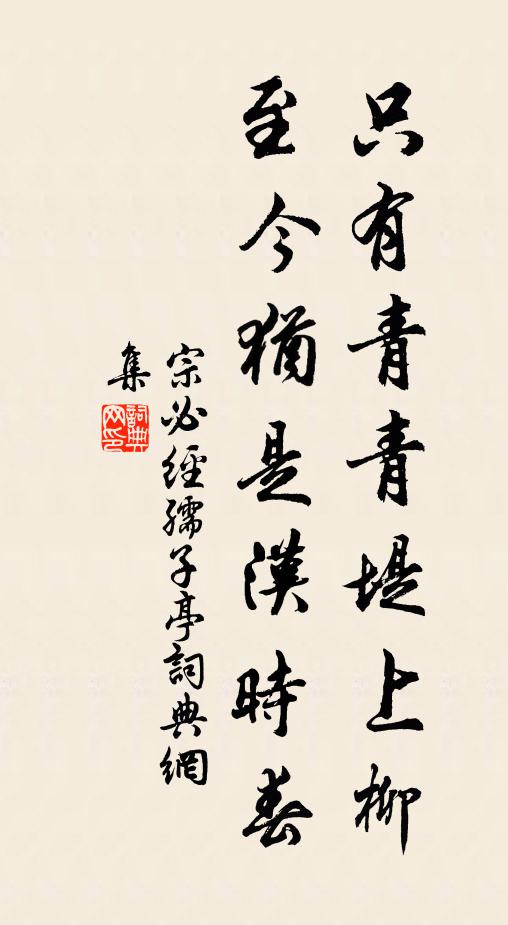 只有青青堤上柳
至今猶是漢時春
宗必經孺子亭詞典網
集
詞典網印